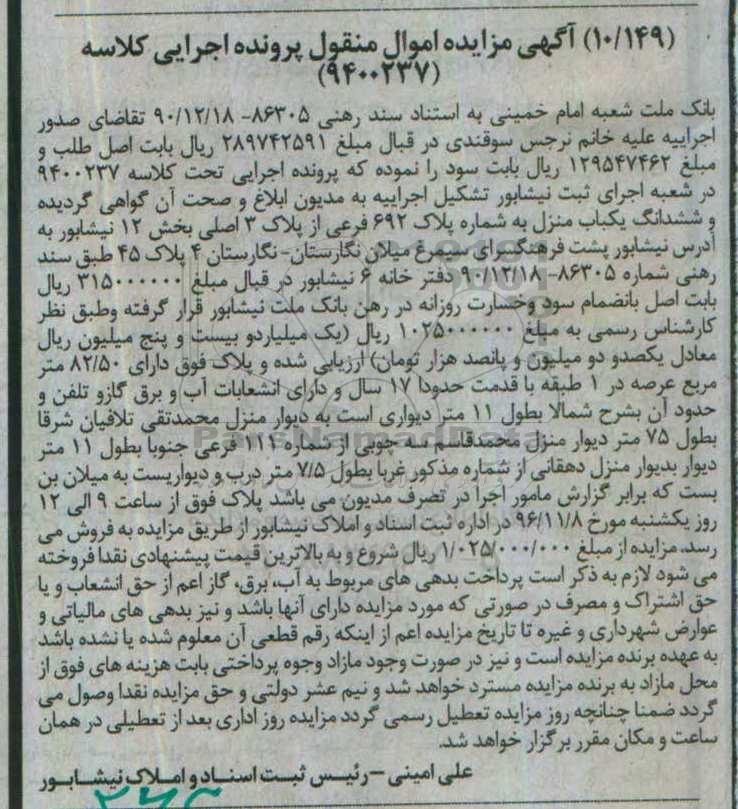 (۱۰/۱۴۹) آگهی مزایده اموال منقول پرونده اجرایی کلاسه
(۹۴۰۰۲۳۷)
بانک ملت شعبه امام خمینی به استناد سند رهنی ۸۶۳۰۵- ۹۰/۱۲/۱۸ تقاضای صدور
اجراییه علیه خانم نرجس سوقندی در قبال مبلغ ۲۸۹۷۴۲۵۹۱ ریال بابت اصل طلب و
مبلغ ۱۲۹۵۴۷۴۶۲ ریال بابت سود را نموده که پرونده اجرایی تحت کلاسه ۹۴۰۰۲۳۷
در شعبه اجرای ثبت نیشابور تشکیل اجراییه به مدیون ابلاغ و صحت آن گواهی گردیده
و ششدانگ یکباب منزل به شماره پلاک ۶۹۲ فرعی از پلاک ۳ اصلی بخش ۱۲ نیشابور به
آدرس نیشابور پشت فرهنگسرای سیمرغ میلان نگارستان- نگارستان ۴ پلاک ۴۵ طبق سند
رهنی شماره ۸۶۳۰۵- ۹۰/۱۲/۱۸ دفتر خانه ۶ نیشابور در قبال مبلغ ۳۱۵۰۰۰۰۰۰ ریال
بابت اصل بانضمام سود وخسارت روزانه در رهن بانک ملت نیشابور قرار گرفته وطبق نظر
کارشناس رسمی به مبلغ ۱۰۲۵۰۰۰۰۰۰ ریال (یک میلیاردو بیست و پنج میلیون ریال
معادل یکصدو دو میلیون و پانصد هزار تومان) ارزیابی شده و پلاک فوق دارای ۸۲/۵۰ متر
مربع عرصه در ۱ طبقه با قدمت حدودا ۱۷ سال و دارای انشعابات آب و برق گازو تلفن و
حدود آن بشرح شمالا بطول ۱۱ متر دیواری است به دیوار منزل محمدتقی تلافیان شرقا
بطول ۷۵ متر دیوار منزل محمدقاسم سه چوبی از شماره ۱۱۱ فرعی جنوبا بطول ۱۱ متر
دیوار بدیوار منزل دهقانی از شماره مذکور غربا بطول ۷/۵ متر درب و دیواریست به میلان بن
بست که برابر گزارش مامور اجرا در تصرف مدیون می باشد پلاک فوق از ساعت ۹ الی ۱۲
روز یکشنبه مورخ ۹۶/۱۱/۸ در اداره ثبت اسناد و املاک نیشابور از طریق مزایده به فروش می
رسد. مزایده از مبلغ ۱/۰۲۵/۰۰۰/۰۰۰ ریال شروع و به بالاترین قیمت پیشنهادی نقدا فروخته
می شود لازم به ذکر است پرداخت بدهی های مربوط به آب، برق، گاز اعم از حق انشعاب و یا
حق اشتراک و مصرف در صورتی که مورد مزایده دارای آنها باشد و نیز بدهی های مالیاتی و
عوارض شهرداری و غیره تا تاریخ مزایده اعم از اینکه رقم قطعی آن معلوم شده یا نشده باشد
به عهده برنده مزایده است و نیز در صورت وجود مازاد وجوه پرداختی بابت هزینه های فوق از
محل مازاد به برنده مزایده مسترد خواهد شد و نیم عشر دولتی و حق مزایده نقدا وصول می
گردد ضمنا چنانچه روز مزایده تعطیل رسمی گردد مزایده روز اداری بعد از تعطیلی در همان
ساعت و مکان مقرر برگزار خواهد شد.
علی امینی – رئیس ثبت اسناد و املاک نیشابور